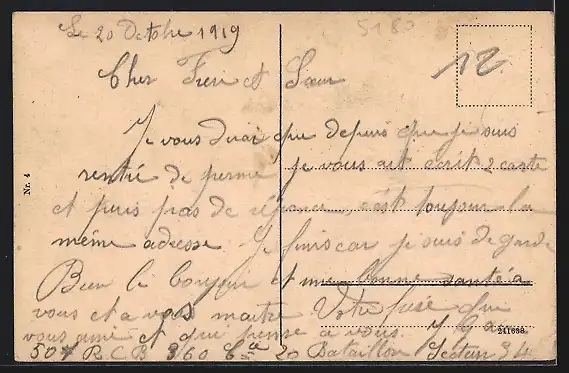 Le 20 Octobre 1919
5180
12
Cher Frere et Sœur
Je vous dirai que depuis que je suis
rentré de perme je vous ait ecrit 2 carte
et puis pas de réponse, c'est toujour la
même adresse Je finis car je suis de garde
Bien le bonjour et une bonne santé a
vous et a vous maitre Votre frère que
vous aime et qui pense a vous.
50e R C B 360 Cie 20 Bataillon Secteur 34
Nr. 4
241698